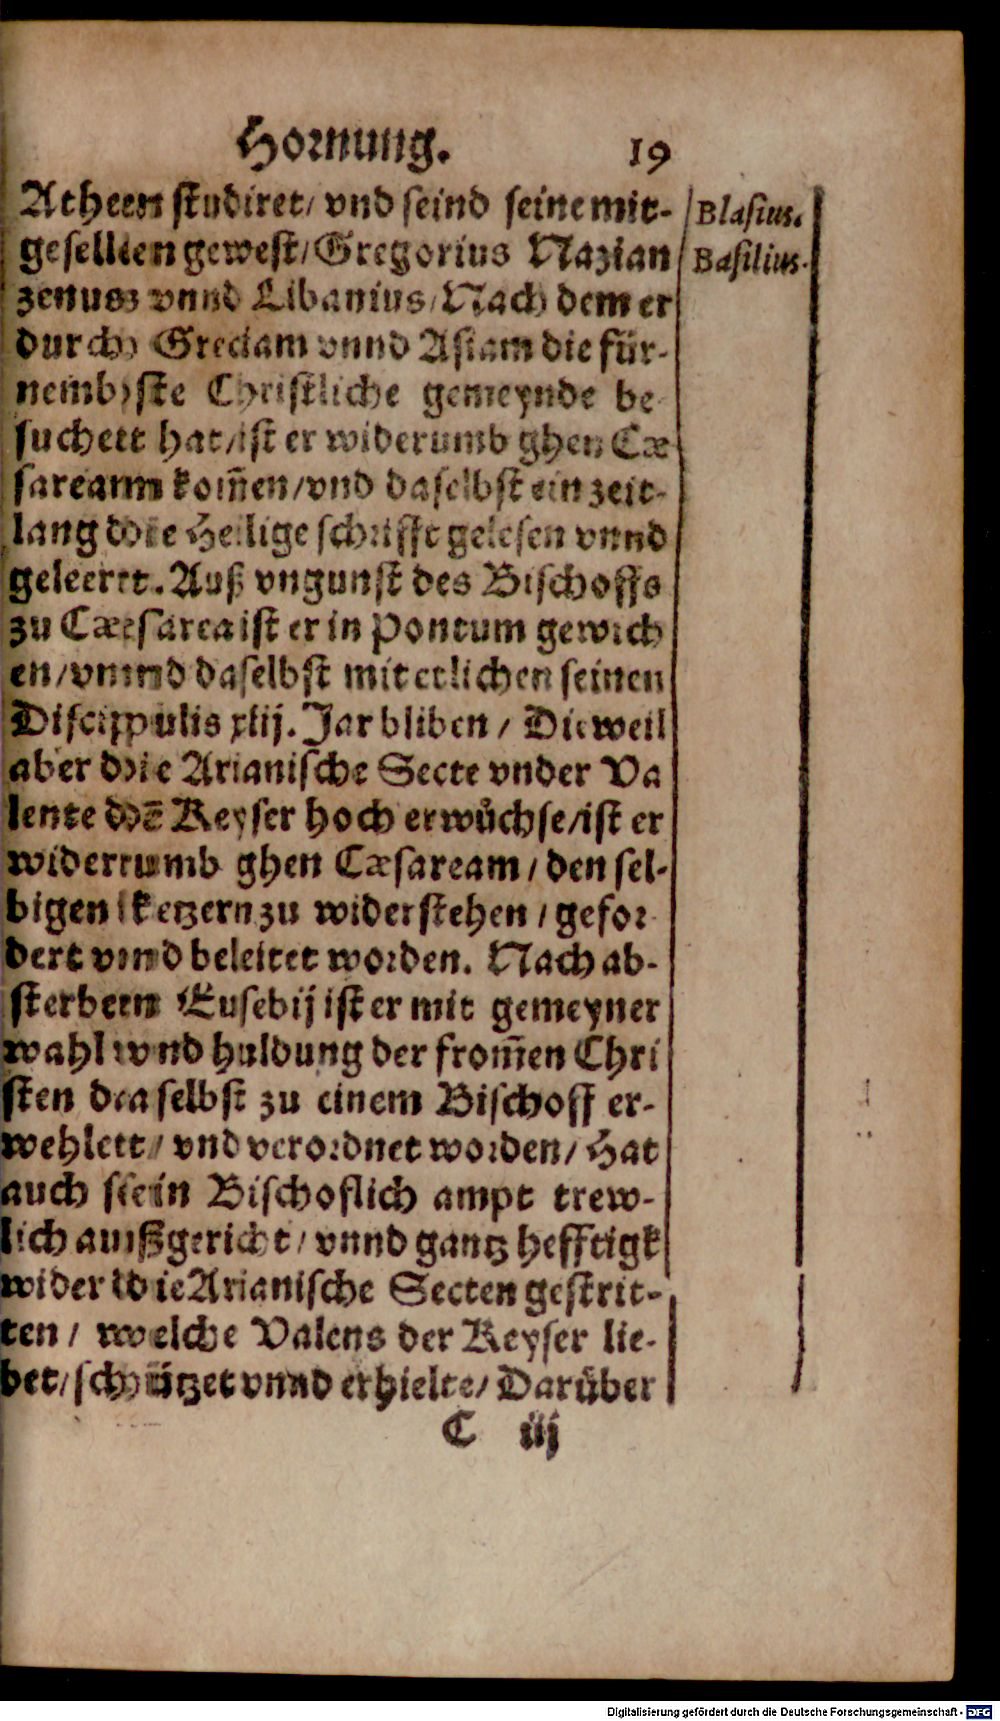 Hornung. 19
Atheen studiret/ vnd seind seine mit-
gesellen gewest/ Gregorius Nazian
zenus vnnd Libanius/ Nach dem er
durch Greciam vnnd Asiam die für-
nembste Christliche gemeynde be
suchett hat/ ist er widerumb ghen Cæ
saream kom̃en/ vnd daselbst ein zeit-
lang die Heilige schrifft gelesen vnnd
geleeret. Auß vngunst des Bischoffs
zu Cæsarea ist er in Pontum gewich
en/ vnnd daselbst mit etlichen seinen
Discipulis xlij. Jar bliben/ Die weil
aber die Arianische Secte vnder Va
lente dẽ Keyser hoch erwůchse/ ist er
widerumb ghen Cæsaream/ den sel-
bigen ketzern zu widerstehen/ gefor
dert vnd beleitet worden. Nach ab-
sterben Eusebij ist er mit gemeyner
wahl vnd huldung der from̃en Chri
sten daselbst zu einem Bischoff er-
wehlett/ vnd verordnet worden/ Hat
auch sein Bischoflich ampt trew-
lich außgericht/ vnnd gantz hefftigk
wider die Arianische Secten gestrit-
ten/ welche Valens der Keyser lie-
bet/ schützet vnnd erhielte/ Darüber
C iij
Blasius.
Basilius.
Digitalisierung gefördert durch die Deutsche Forschungsgemeinschaft - DFG